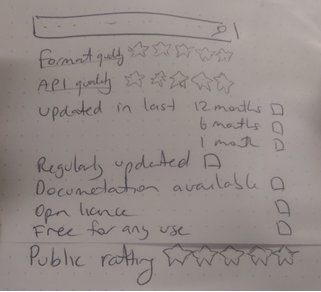 Format quality
API quality
Updated in last 12 months
6 months
1 month
Regularly updated
Documetation available
Open licence
Free for any use
Public rating